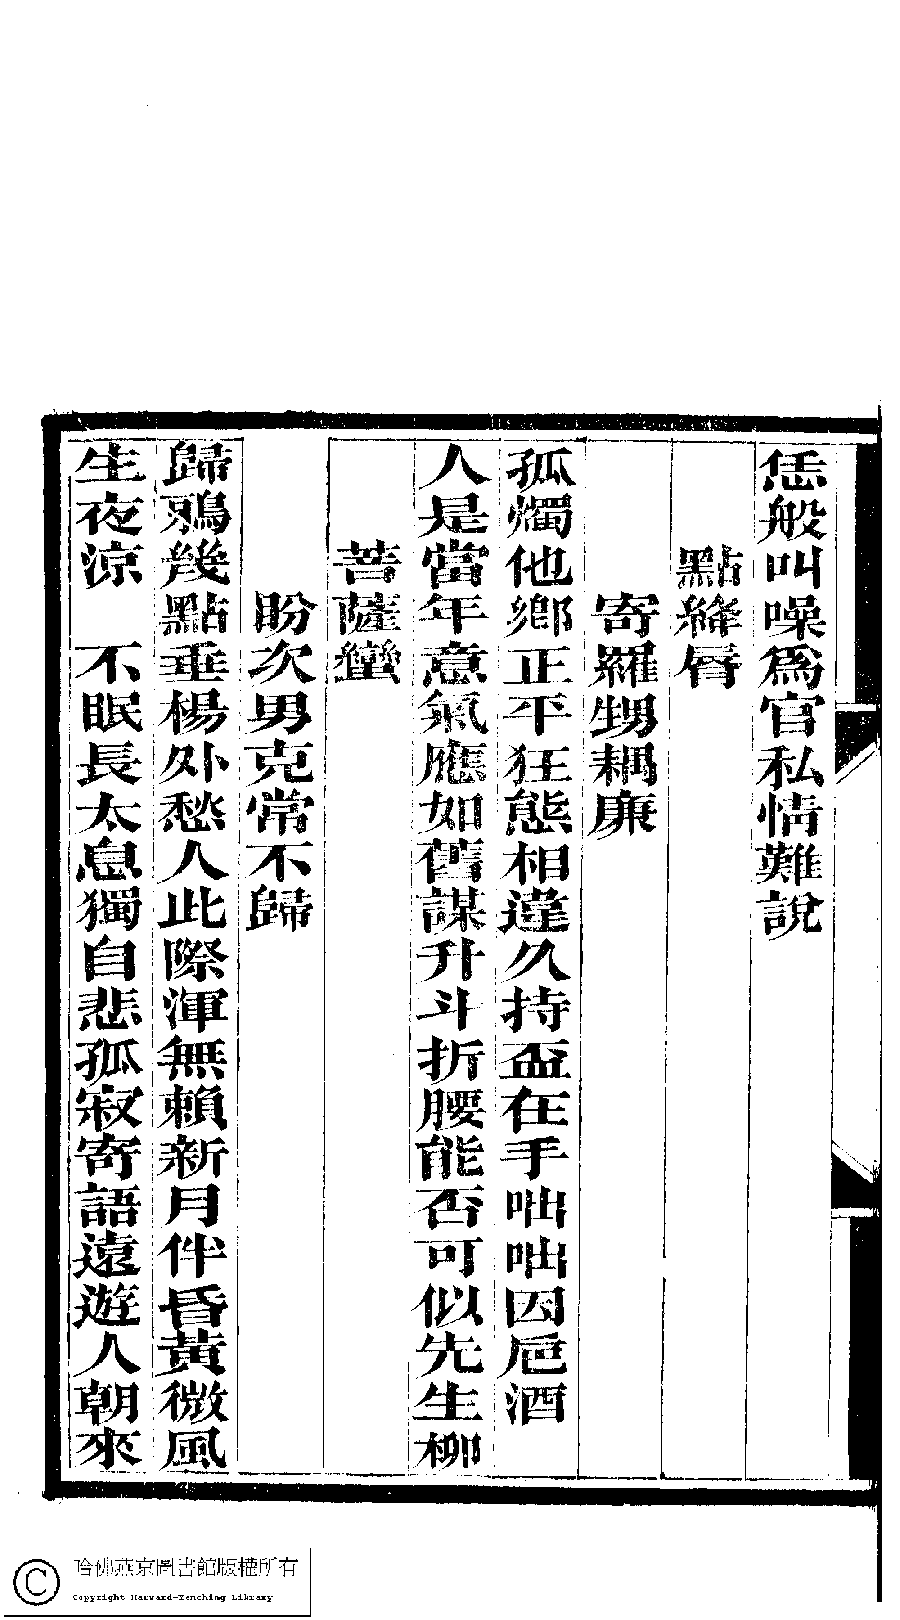 恁般叫噪爲官私情難說
點絳脣
寄羅甥耦廉
孤燭他鄉正平狂態相違久持盃在手咄咄因卮酒
人是當年意氣應如舊謀升斗折腰能否可似先生柳
菩薩蠻
盼次男克常不歸
歸鴉幾點垂楊外愁人此際渾無賴新月伴昏黃微風
生夜涼　不眠長太息獨自悲孤寂寄語遠遊人朝來
哈佛燕京圖書館版權所有
Copyright Harvard-Yenching Library